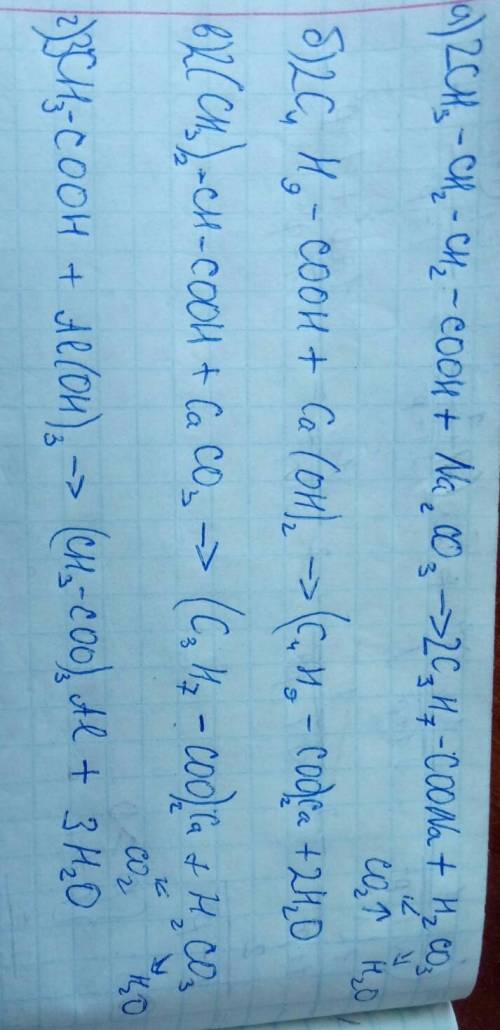 а) 2CH₃-CH₂-CH₂-COOH + Na₂CO₃ → 2C₃H₇-COONa + H₂CO₃
↙ ↘
CO₂↑ H₂O
б) 2C₄H₉-COOH + Ca(OH)₂ → (C₄H₉-COO)₂Ca + 2H₂O
в) 2(CH₃)₂-CH-COOH + CaCO₃ → (C₃H₇-COO)₂Ca + H₂CO₃
↙ ↘
CO₂ H₂O
г) 3CH₃-COOH + Al(OH)₃ → (CH₃-COO)₃Al + 3H₂O